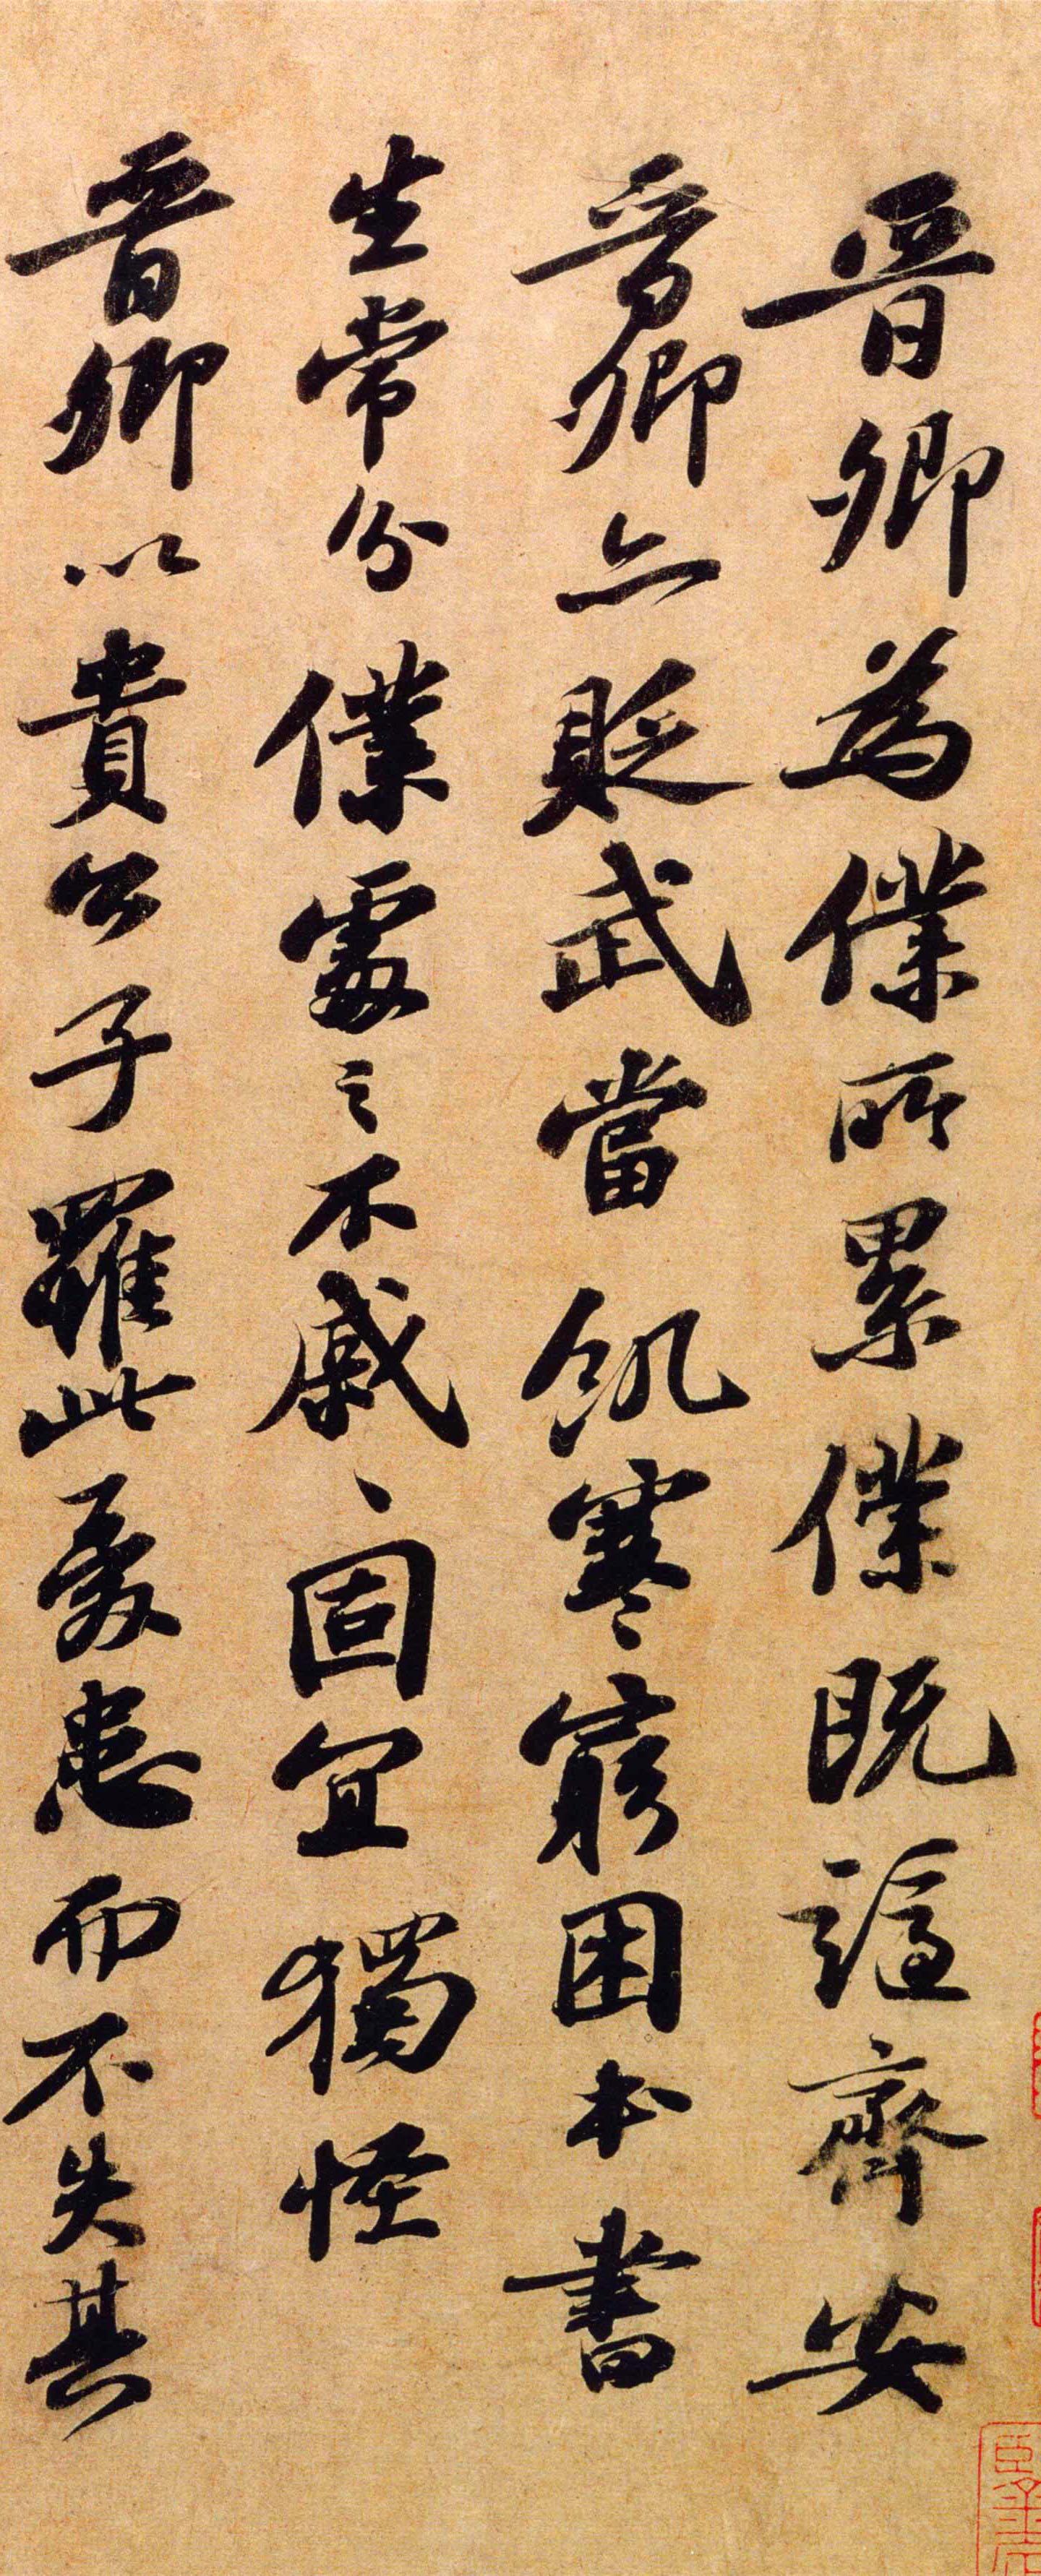 晉卿為僕所累僕既謫齊安
晉卿亦貶武當飢寒窮困本書
生常分僕處之不戚戚固宜獨怪
晉卿以貴公子罹此憂患而不失其